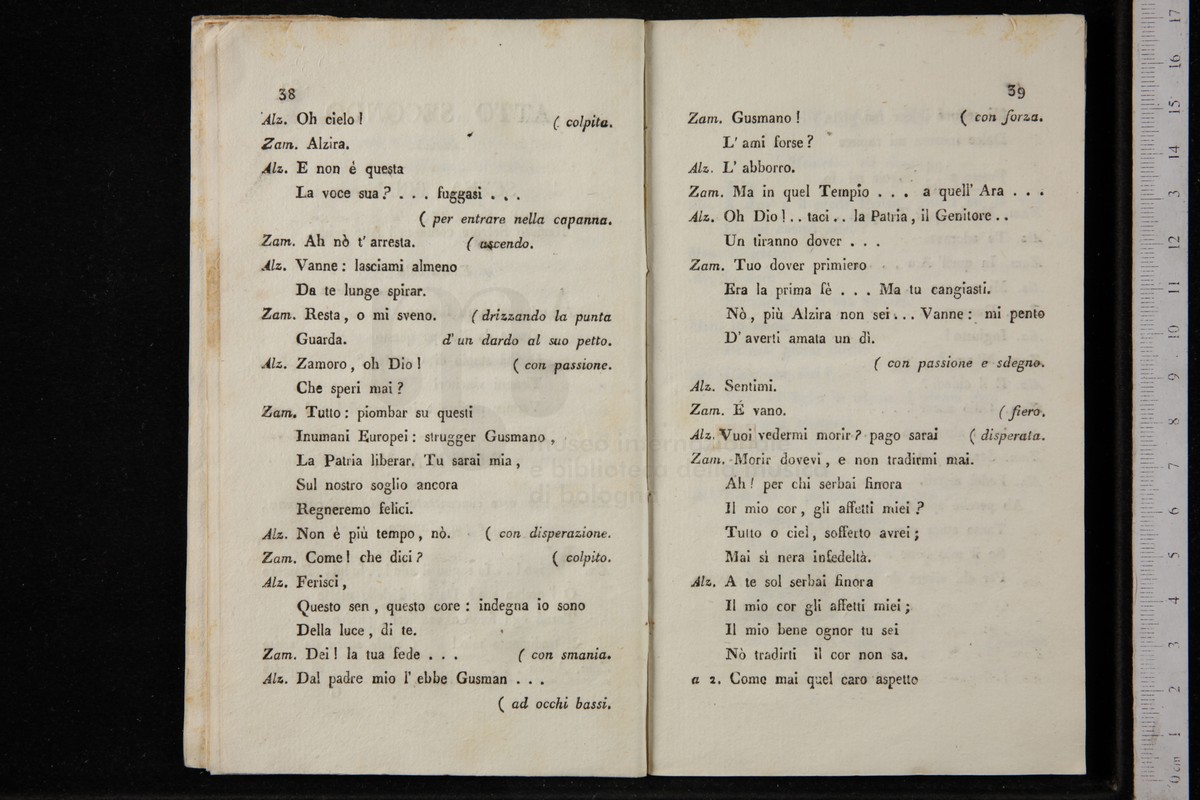 38
Alz. Oh cielo! ( colpita.
Zam. Alzira.
Alz. E non é questa
La voce sua? . . . fuggasi . . .
( per entrare nella capanna.
Zam. Ah nò t' arresta. ( uscendo.
Alz. Vanne: lasciami almeno
Da te lunge spirar.
Zam. Resta, o mi sveno. ( drizzando la punta
Guarda. d' un dardo al suo petto.
Alz. Zamoro, oh Dio! ( con passione.
Che speri mai?
Zam. Tutto: piombar su questi
Inumani Europei: strugger Gusmano,
La Patria liberar. Tu sarai mia,
Sul nostro soglio ancora
Regneremo felici.
Alz. Non é più tempo, nò. ( con disperazione.
Zam. Come! che dici? ( colpito.
Alz. Ferisci,
Questo sen, questo core: indegna io sono
Della luce, di te.
Zam. Dei! la tua fede . . . ( con smania.
Alz. Dal padre mio l' ebbe Gusman . . .
( ad occhi bassi.
39
Zam. Gusmano! ( con forza.
L' ami forse?
Alz. L' abborro.
Zam. Ma in quel Tempio . . . a quell' Ara . . .
Alz. Oh Dio!.. taci.. la Patria, il Genitore..
Un tiranno dover . . .
Zam. Tuo dover primiero
Era la prima fé . . . Ma tu cangiasti.
Nò, più Alzira non sei... Vanne: mi pento
D' averti amata un dì.
( con passione e sdegno.
Alz. Sentimi.
Zam. É vano. ( fiero.
Alz. Vuoi vedermi morir? pago sarai ( disperata.
Zam. Morir dovevi, e non tradirmi mai.
Ah! per chi serbai finora
Il mio cor, gli affetti miei?
Tutto o ciel, sofferto avrei;
Mai sì nera infedeltà.
Alz. A te sol serbai finora
Il mio cor gli affetti miei;
Il mio bene ognor tu sei
Nò tradirti il cor non sa.
a 2. Come mai quel caro aspetto
museo internazionale
e biblioteca della musica
di bologna
0 cm 1 2 3 4 5 6 7 8 9 10 11 12 13 14 15 16 17